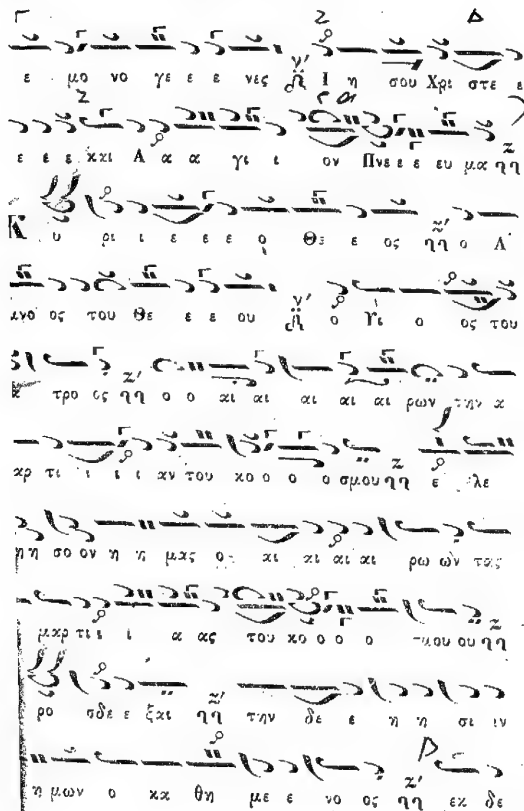 ε μο νο γε ε ε νες Ι η σου Χρι στε ε
ε ε ε και Α α α γι ι ον Πνε ε ε ευ μα
υ ρι ι ε ε ε ο Θε ε ος ο Α
ος του Θε ε ε ου ο Υι ο ος του
τρο ος ο ο αι αι αι αι αι ρων την α
αρ τι ι ι ι αν του κο ο ο ο σμου ε λε
η σο ον η η μας ο αι αι αι αι ρω ων τας
μαρ τι ι ι α ας του κο ο ο ο ου ου
ρο σδε ε ξαι την δε ε η η σι ιν
η μων ο κα θη με ε νο ος εκ δε